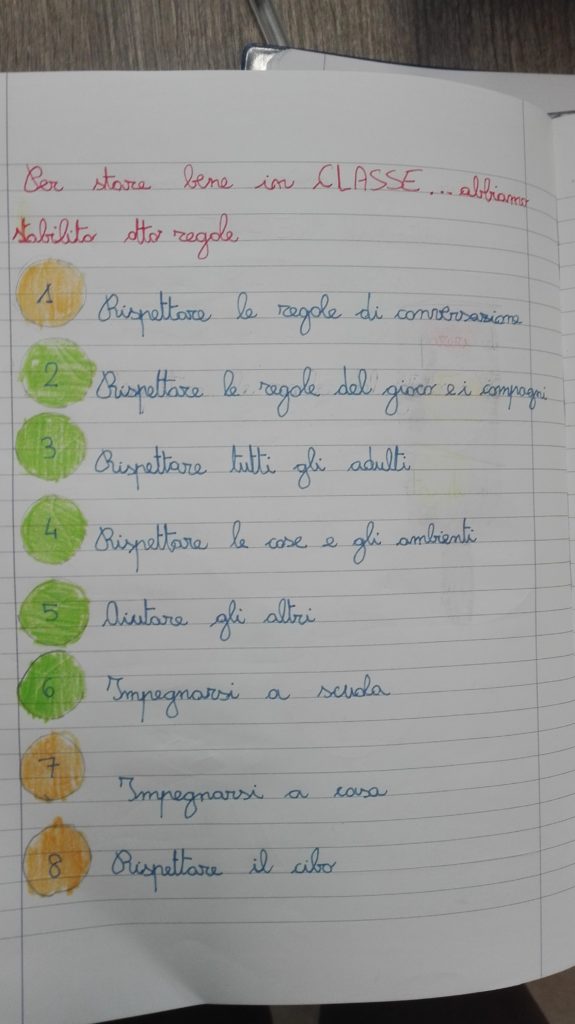 Per stare bene in CLASSE... abbiamo
stabilito otto regole
1 Rispettare le regole di conversazione
2 Rispettare le regole del gioco e i compagni
3 Rispettare tutti gli adulti
4 Rispettare le cose e gli ambienti
5 Aiutare gli altri
6 Impegnarsi a scuola
7 Impegnarsi a casa
8 Rispettare il cibo